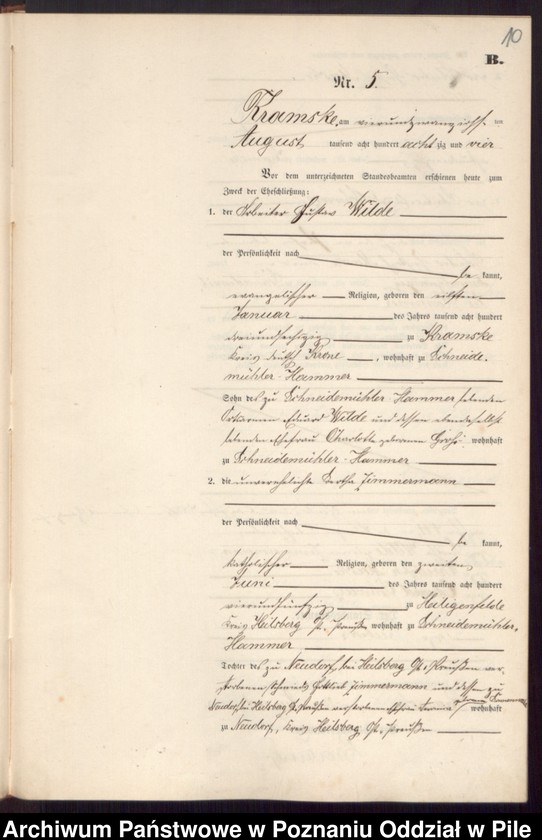 10
B.
Nr. 5.
Kramske, am vierundzwanzigsten
August tausend acht hundert achtzig und vier
Vor dem unterzeichneten Standesbeamten erschienen heute zum
Zweck der Eheschließung:
1. der Arbeiter Gustav Wilde
der Persönlichkeit nach
be kannt,
evangelischer Religion, geboren den elften
Januar des Jahres tausend acht hundert
dreiundsechszig zu Kramske
Kreis deutsch Krone, wohnhaft zu Schneide-
mühler-Hammer
Sohn des zu Schneidemühler Hammer lebenden
Eduard Wilde und dessen ebendaselbst
lebenden Ehefrau Charlotte geborenen wohnhaft
zu Schneidemühler-Hammer
2. die unverehelichte Bertha Zimmermann
der Persönlichkeit nach
be kannt,
katholischer Religion, geboren den zweiten
Juni des Jahres tausend acht hundert
vierundfünfzig zu Heiligenfelde
Kreis Heilsberg Ost. Preußen wohnhaft zu Schneidemühler-
Hammer
Tochter des zu Neudorf, bei Heilsberg Ost. Preußen ver-
storbenen Schmieds Gottlieb Zimmermann und dessen zu
Neudorf, bei Heilsberg Ost. Preußen verstorbenen Ehefrau wohnhaft
zu Neudorf, Kreis Heilsberg Ost. Preußen
Archiwum Państwowe w Poznaniu Oddział w Pile